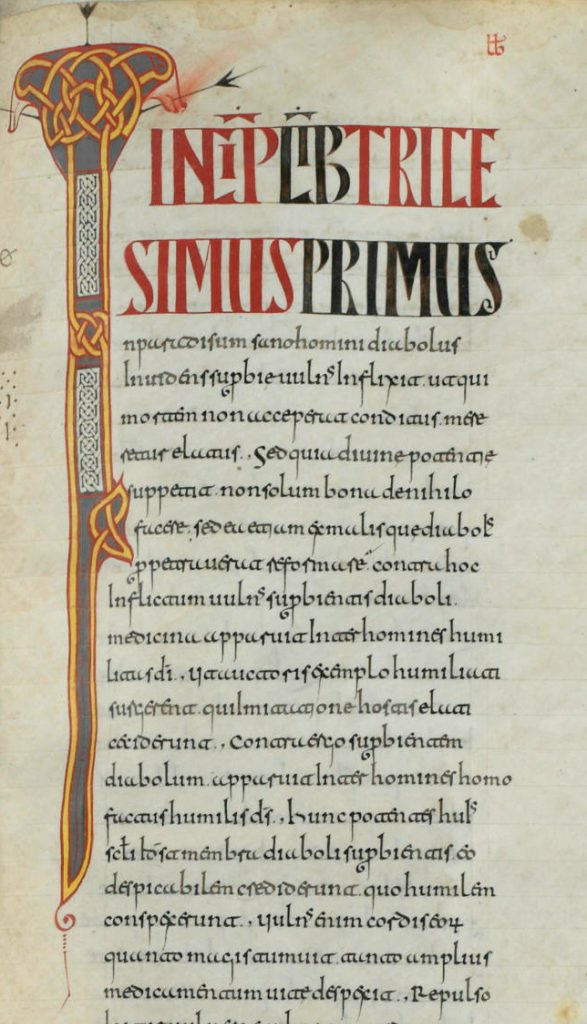 INCIP LIB TRICE
SIMUS PRIMUS
In paradisum sano homini diabolus
Inuidens supbie uulns Inflixit. ut qui
mortem non acceperat conditus. mere
retur elatus., Sed quia diuine potentie
suppetit. non solum bona de nihilo
facere. sed ea etiam ex malis que diabols
ppetrauerat reformare. contra hoc
Inflictum uulns supbientis diaboli.
medicina apparuit Inter homines humi
litas di., Ut auctoris exemplo humiliati
surgerent. qui Imitatione hostis elati
ceciderant., Contra ergo supbientem
diabolum. apparuit Inter homines homo
factus humilis ds., Hunc potentes huis
scli membra diaboli supbientis. eo
despicabilem crediderunt. quo humilem
conspexerunt., Uulns enim cordis eorum
quanto magis tumuit. tanto amplius
medicamentum uite despexit., Repulso